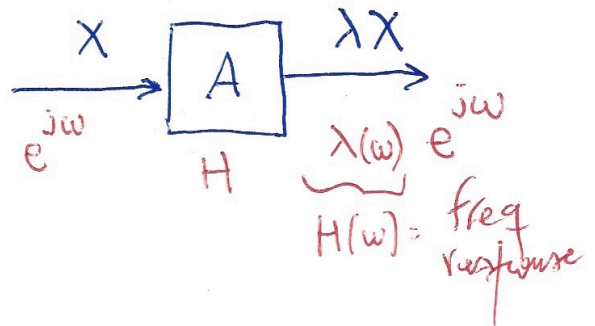 X A λX
e^{jω} H λ(ω) e^{jω}
H(ω) = freq
response